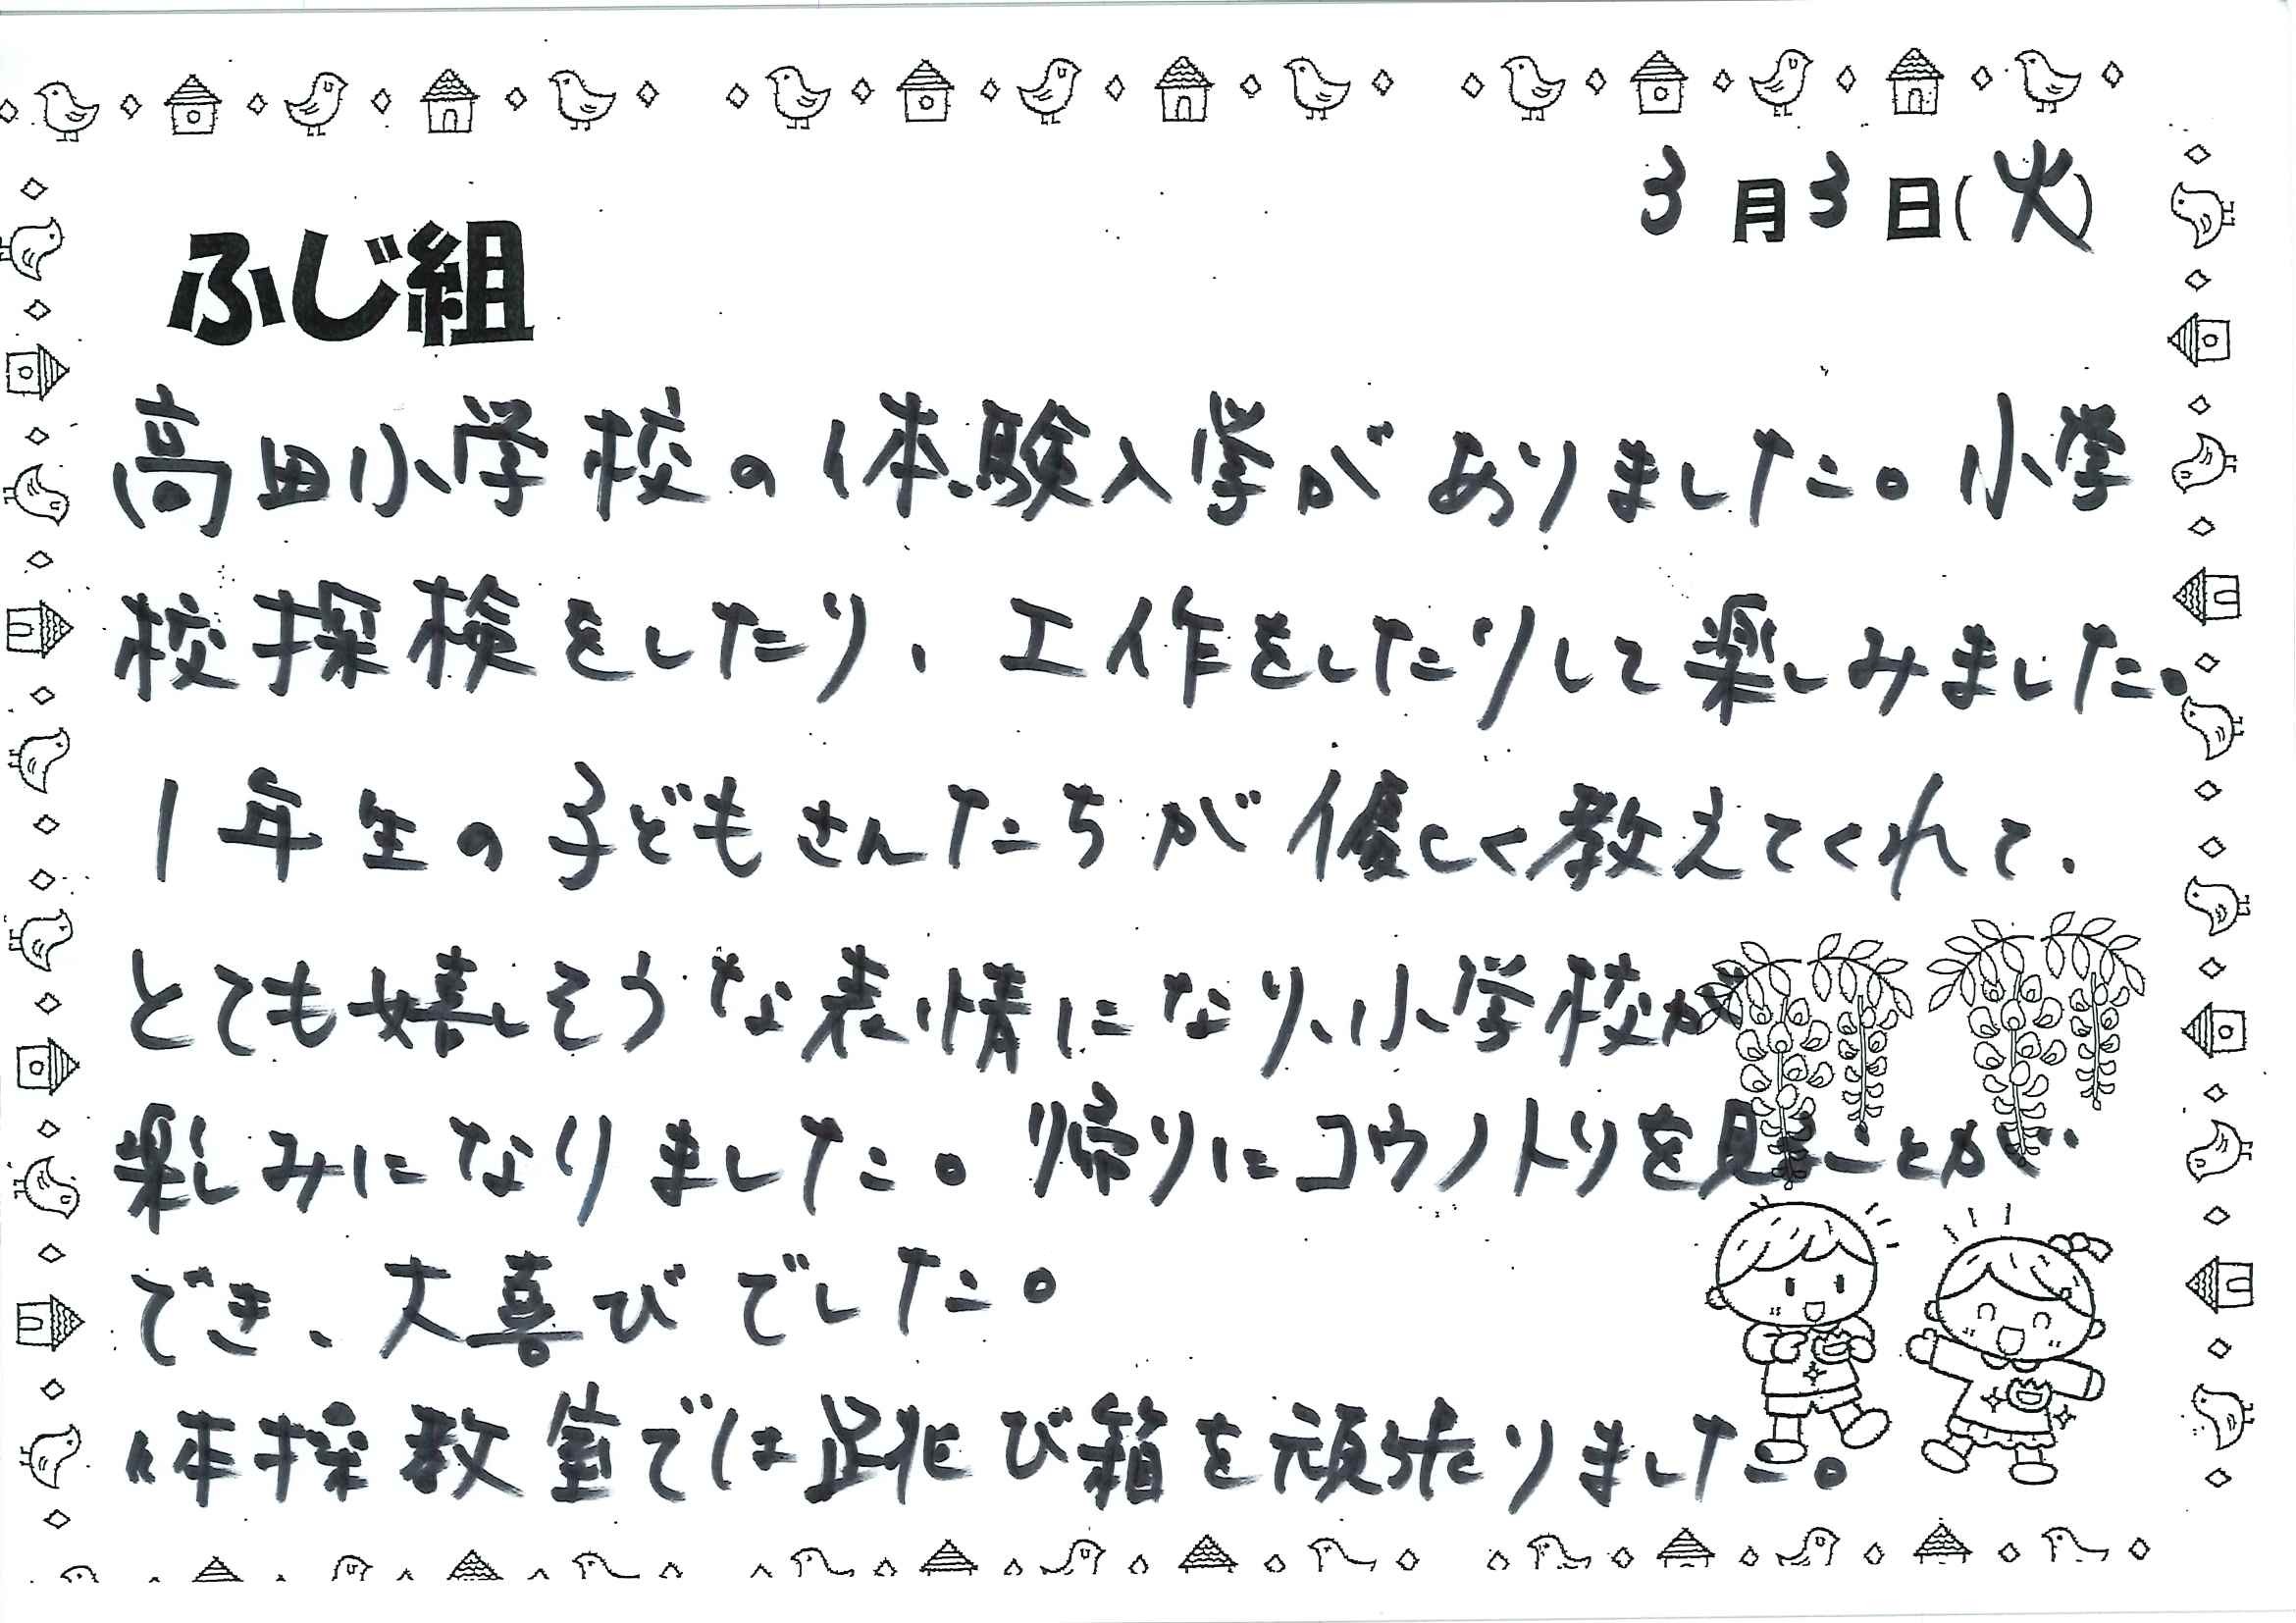 3月3日(火)
ふじ組
高田小学校の体験入学がありました。小学
校探検をしたり、工作をしたりして楽しみました。
1年生の子どもさんたちが優しく教えてくれて、
とても嬉しそうな表情になり、小学校が
楽しみになりました。帰りにコウノトリを見ることが
でき、大喜びでした。
体操教室では跳び箱を頑張りました。